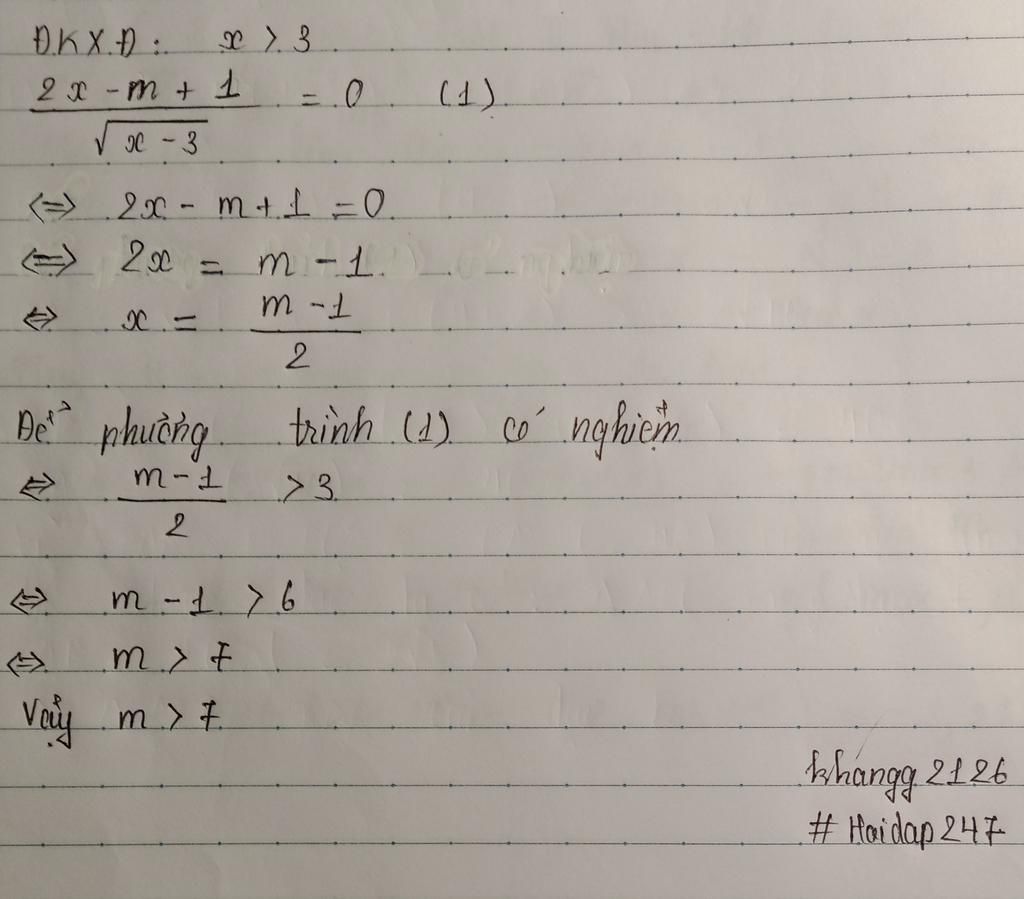 ĐKXĐ: x > 3
\frac{2x - m + 1}{\sqrt{x - 3}} = 0 (1)
<=> 2x - m + 1 = 0
<=> 2x = m - 1
<=> x = \frac{m - 1}{2}
Để phương trình (1) có nghiệm
<=> \frac{m - 1}{2} > 3
<=> m - 1 > 6
<=> m > 7
Vậy m > 7
khangg2126
# Hoidap247